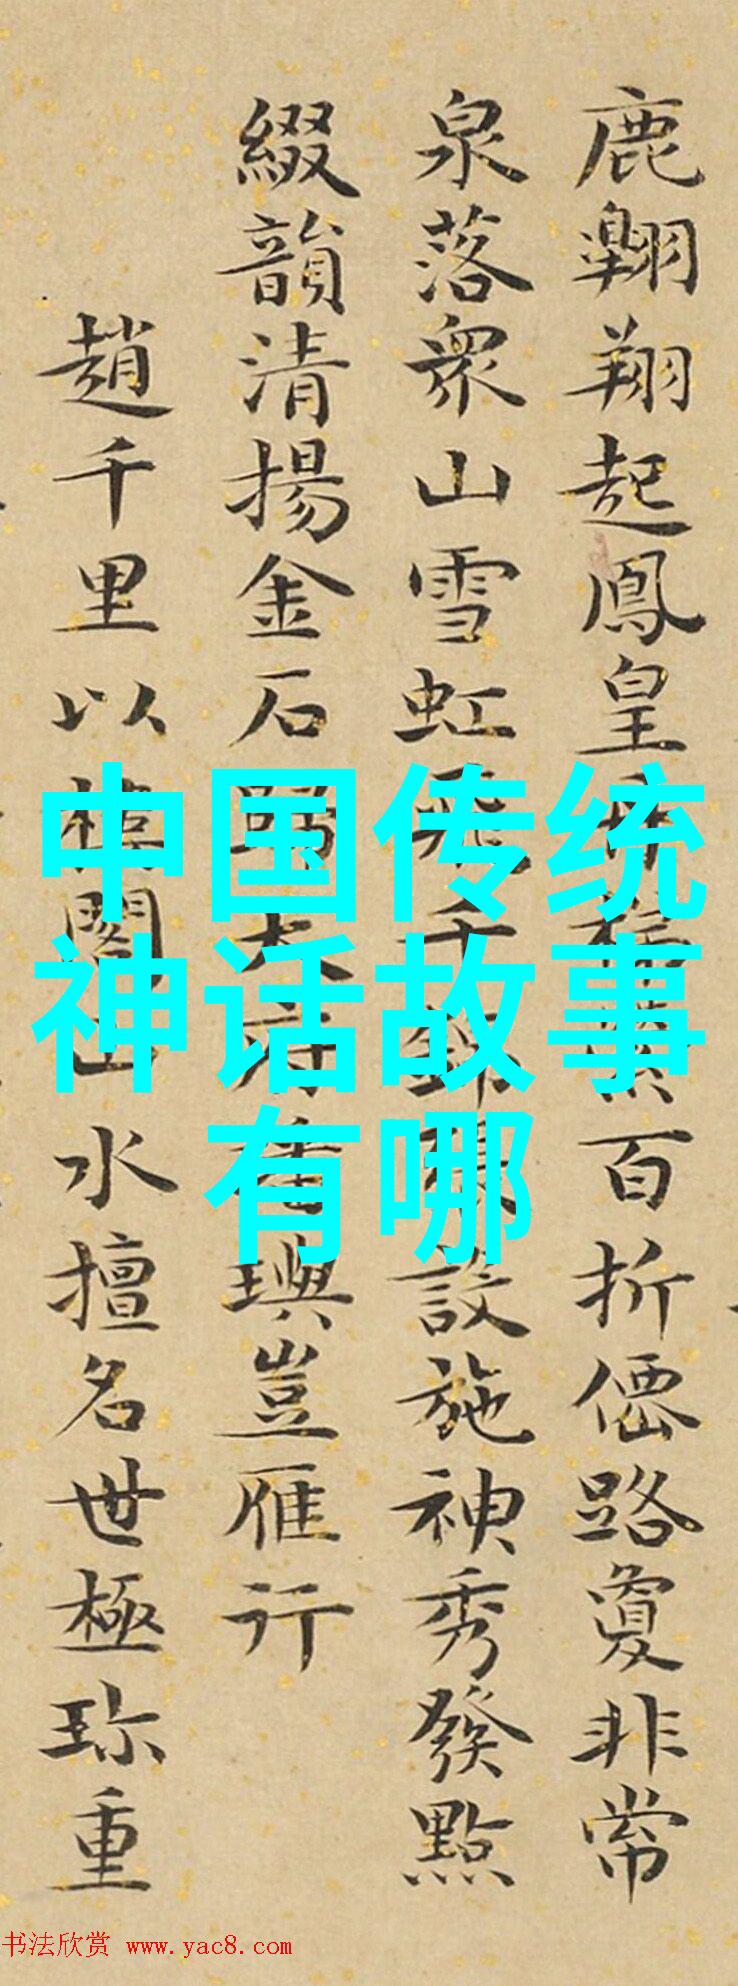 鹿翱翔起鳳皇
百折僊路敻非常
泉落衆山雪虹飛千
設施神秀發點
綴韻清揚金石
大府
璵豈雁行
趙千里以樓閣山水擅名世極珎重
中国传统
神话故事
有哪
书法欣赏 www.yac8.com